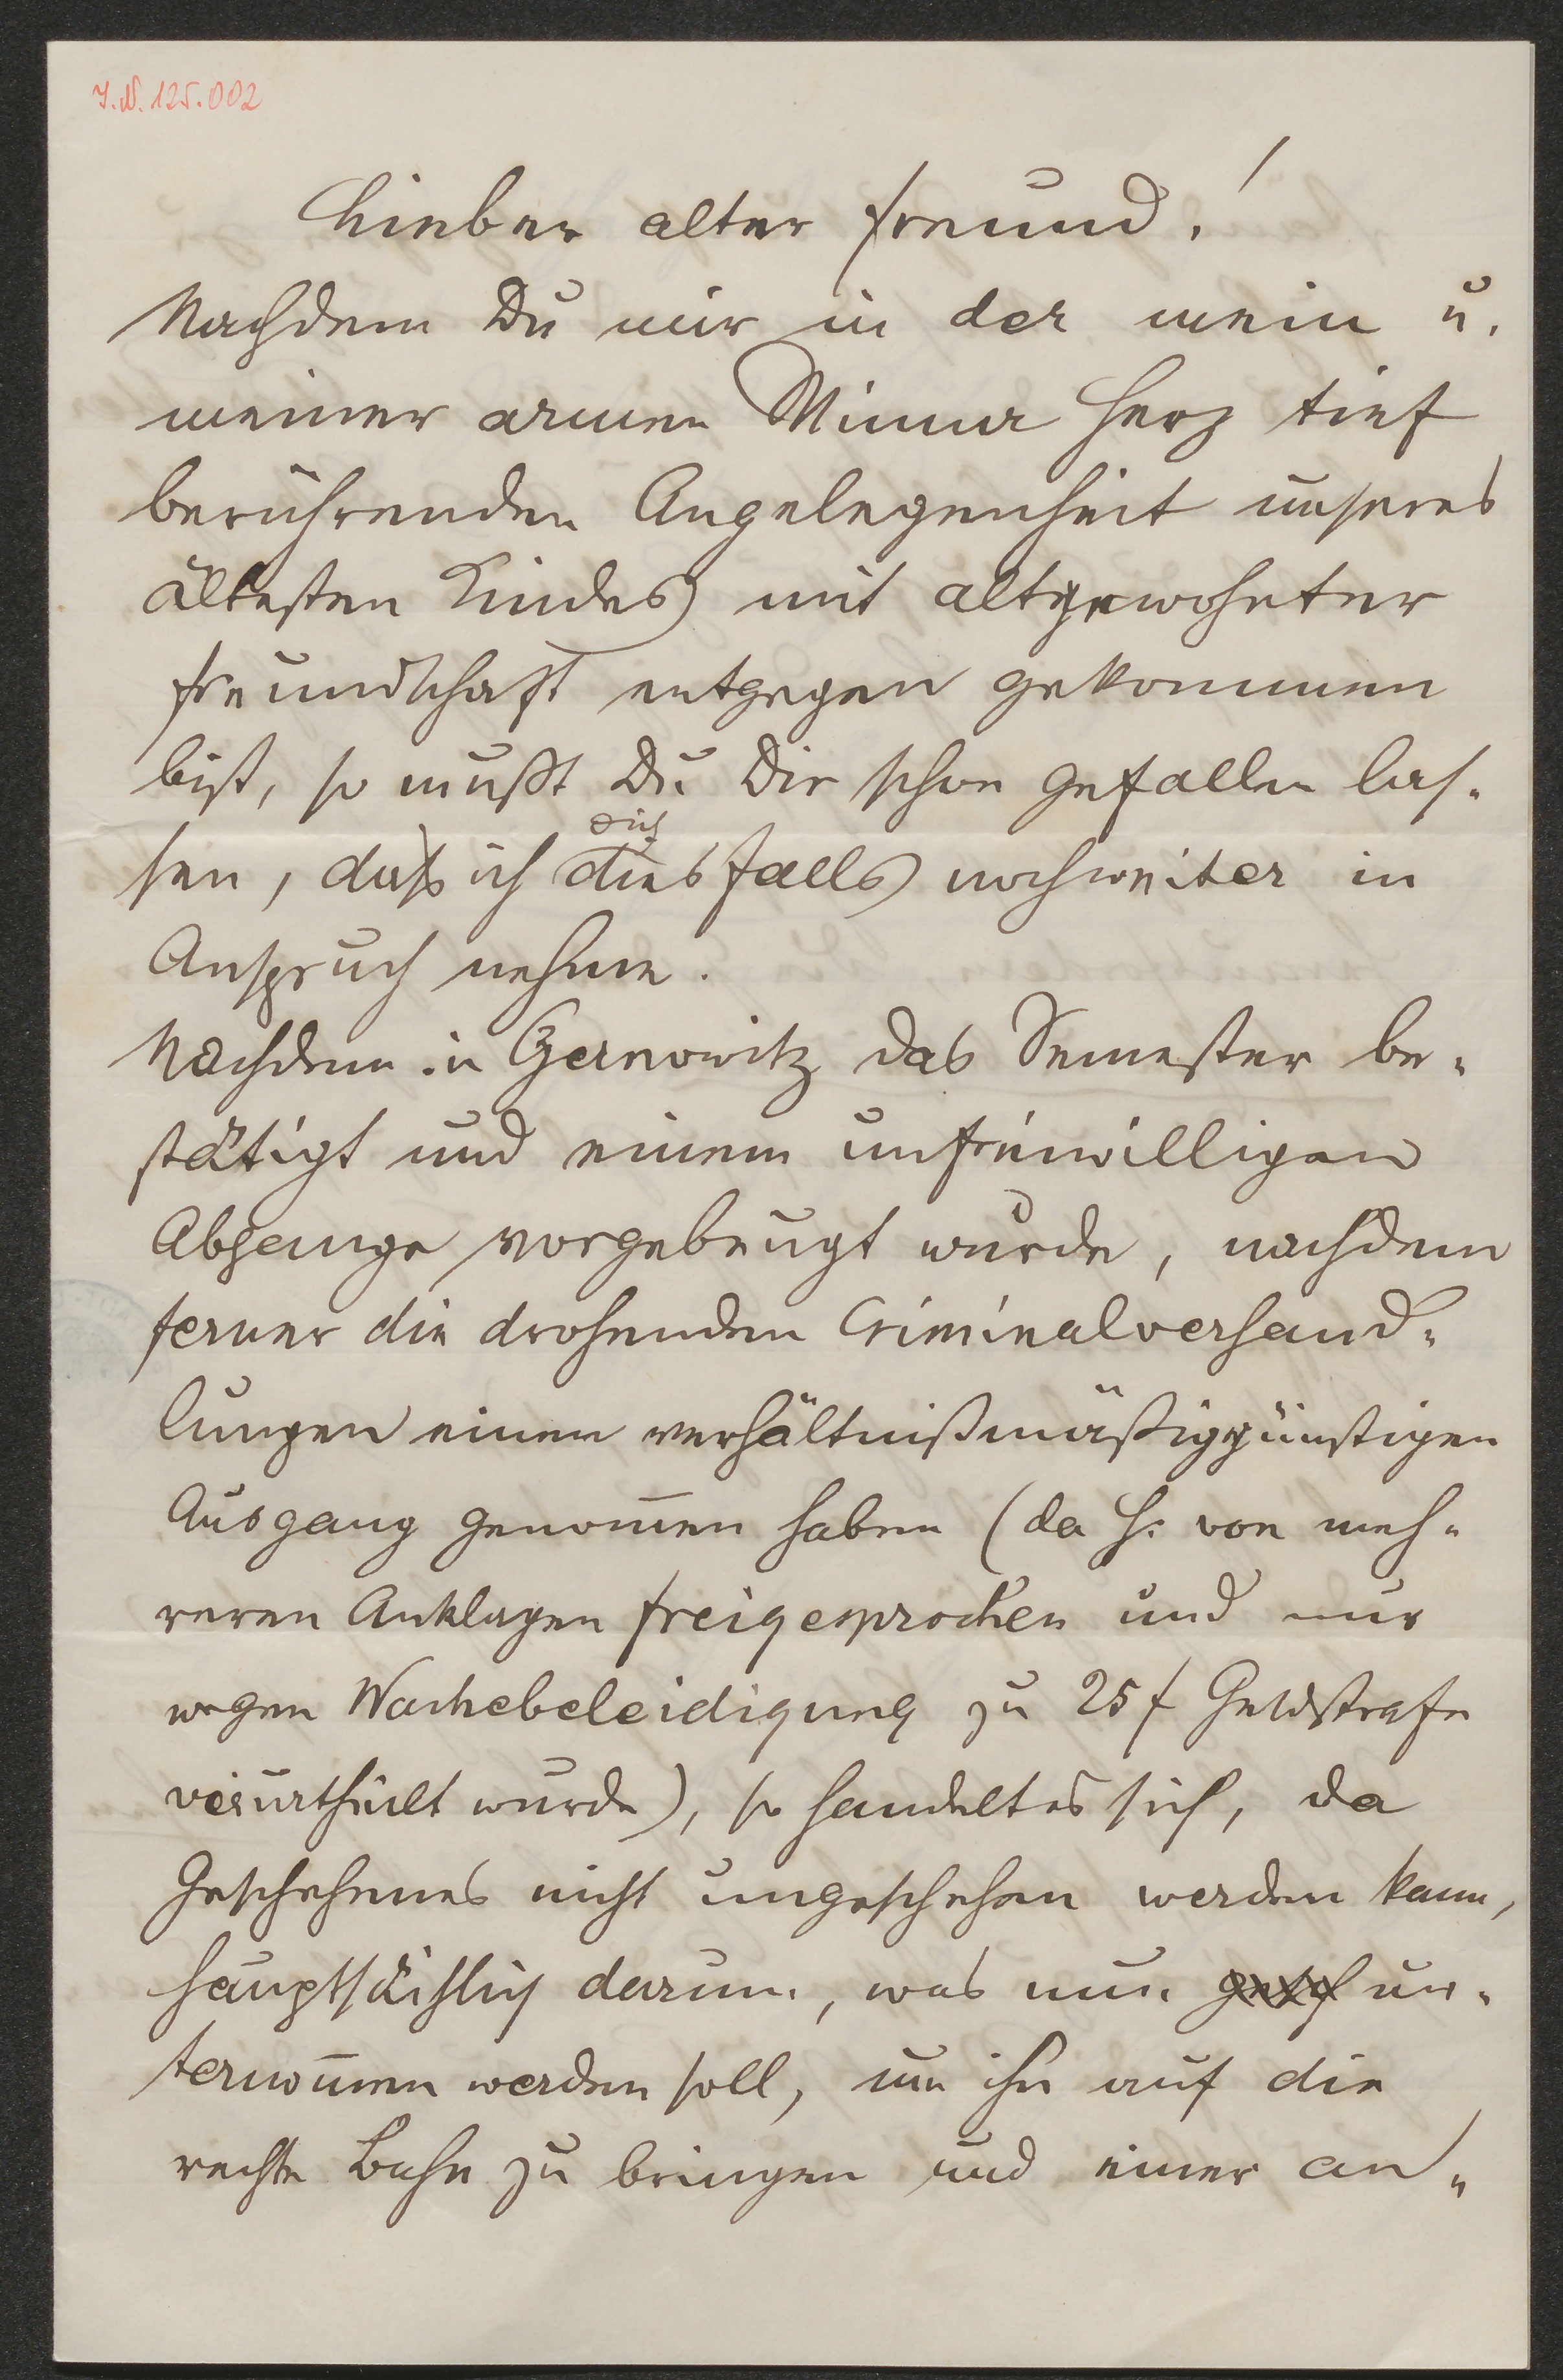 I.N. 125.002
Lieber alter Freund!
Nachdem Du mir in der mein u.
meiner armen Minna Herz tief
berührenden Angelegenheit unseres
ältesten Kindes mit altgewohnter
Freundschaft entgegen gekommen
bist, so mußt Du Dir schon gefallen las-
dich
sen, daß ich diesfalls noch weiter in
Anspruch nehme.
Nachdem in Czernowitz das Semester be-
stätigt und einem unfreiwilligen
Abgange vorgebeugt wurde, nachdem
ferner die drohenden Criminalverhand-
lungen einen verhältnißmäßig günstigen
Ausgang genom̄en haben (da H. von meh-
reren Anklagen freigesprochen und nur
wegen Wachebeleidigung zu 25 f Geldstrafe
verurtheilt wurde), so handelt es sich, da
Geschehenes nicht ungeschehen werden kann,
hauptsächlich darum, was nun gesch un-
ternom̄en werden soll, um ihn auf die
rechte Bahn zu bringen und einer an-